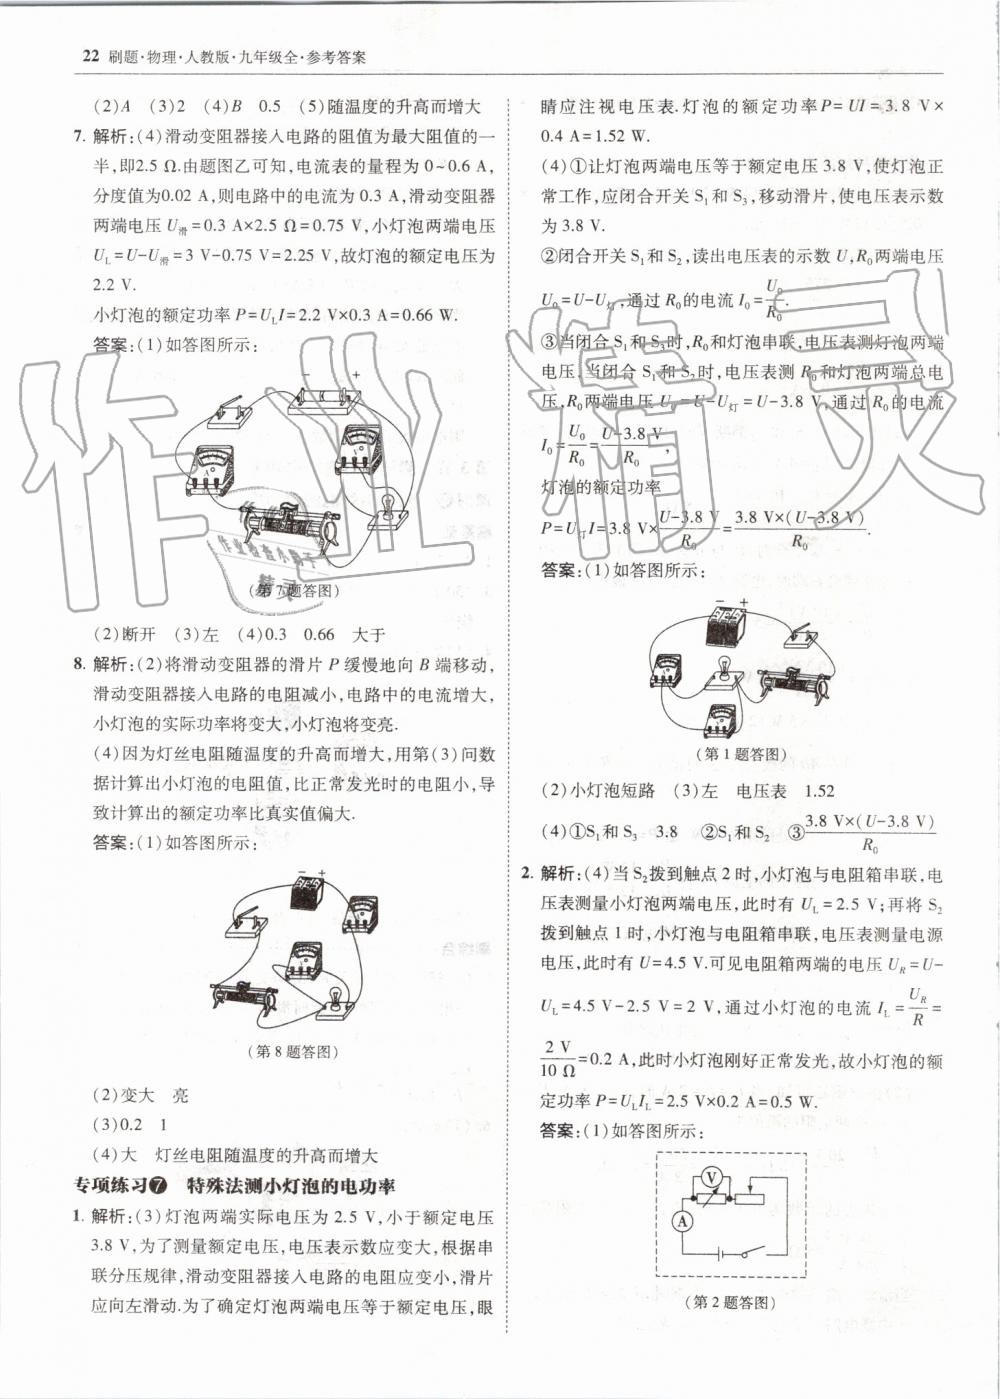 22 刷题·物理·人教版·九年级全·参考答案
(2)A (3)2 (4)B 0.5 (5)随温度的升高而增大
7. 解析:(4)滑动变阻器接入电路的阻值为最大阻值的一
半,即2.5 Ω.由题图乙可知,电流表的量程为 0~0.6 A,
分度值为0.02 A,则电路中的电流为 0.3 A,滑动变阻器
两端电压 U滑=0.3 A×2.5 Ω=0.75 V,小灯泡两端电压
UL=U-U滑=3 V-0.75 V=2.25 V,故灯泡的额定电压为
2.2 V.
小灯泡的额定功率 P=ULI=2.2 V×0.3 A=0.66 W.
答案:(1)如答图所示:
- +
A
V
(第 7 题答图)
(2)断开 (3)左 (4)0.3 0.66 大于
8. 解析:(2)将滑动变阻器的滑片 P 缓慢地向 B 端移动,
滑动变阻器接入电路的电阻减小,电路中的电流增大,
小灯泡的实际功率将变大,小灯泡将变亮.
(4)因为灯丝电阻随温度的升高而增大,用第(3)问数
据计算出小灯泡的电阻值,比正常发光时的电阻小,导
致计算出的额定功率比真实值偏大.
答案:(1)如答图所示:
- +
(第 8 题答图)
(2)变大 亮
(3)0.2 1
(4)大 灯丝电阻随温度的升高而增大
专项练习7 特殊法测小灯泡的电功率
1. 解析:(3)灯泡两端实际电压为 2.5 V,小于额定电压
3.8 V,为了测量额定电压,电压表示数应变大,根据串
联分压规律,滑动变阻器接入电路的电阻应变小,滑片
应向左滑动.为了确定灯泡两端电压等于额定电压,眼
睛应注视电压表.灯泡的额定功率 P=UI=3.8 V×
0.4 A=1.52 W.
(4)①让灯泡两端电压等于额定电压 3.8 V,使灯泡正
常工作,应闭合开关 S1和 S3,移动滑片,使电压表示数
为 3.8 V.
②闭合开关 S1和 S2,读出电压表的示数 U,R0两端电压
U0=U-U灯,通过 R0的电流 I0=U0/R0.
③当闭合 S1和 S3时,R0和灯泡串联,电压表测灯泡两端
电压.当闭合 S1和 S2时,电压表测 R0和灯泡两端总电
压,R0两端电压 U0=U-U灯=U-3.8 V,通过 R0的电流
I0=U0/R0=(U-3.8 V)/R0,
灯泡的额定功率
P=U灯I=3.8 V×(U-3.8 V)/R0=3.8 V×(U-3.8 V)/R0.
答案:(1)如答图所示:
- +
(第 1 题答图)
(2)小灯泡短路 (3)左 电压表 1.52
(4)①S1和 S3 3.8 ②S1和 S2 ③3.8 V×(U-3.8 V)/R0
2. 解析:(4)当 S2拨到触点 2 时,小灯泡与电阻箱串联,电
压表测量小灯泡两端电压,此时有 UL=2.5 V;再将 S2
拨到触点 1 时,小灯泡与电阻箱串联,电压表测量电源
电压,此时有 U=4.5 V.可见电阻箱两端的电压 UR=U-
UL=4.5 V-2.5 V=2 V,通过小灯泡的电流 IL=UR/R=
2 V/10 Ω=0.2 A,此时小灯泡刚好正常发光,故小灯泡的额
定功率 P=ULIL=2.5 V×0.2 A=0.5 W.
答案:(1)如答图所示:
V
A
(第 2 题答图)
作业精灵
作业检查小助手
精灵